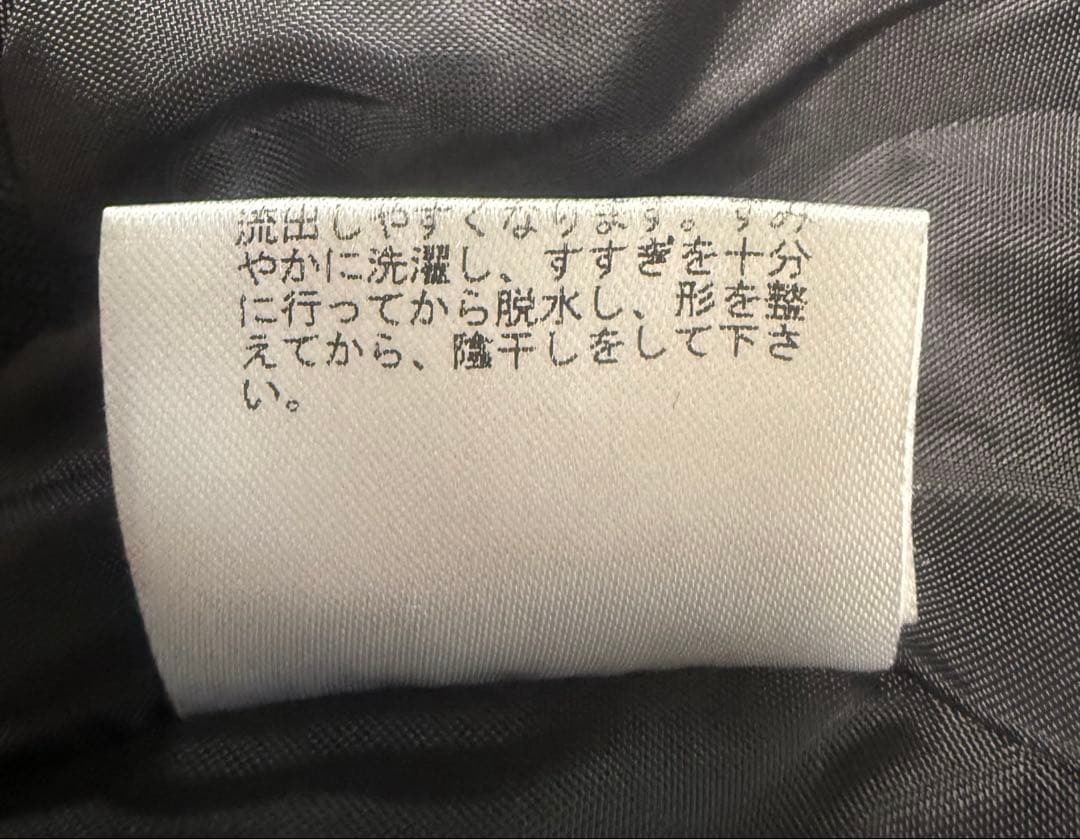 流出しやすくなります。すみ
やかに洗濯し、すすぎを十分
に行ってから脱水し、形を整
えてから、陰干しをして下さ
い。